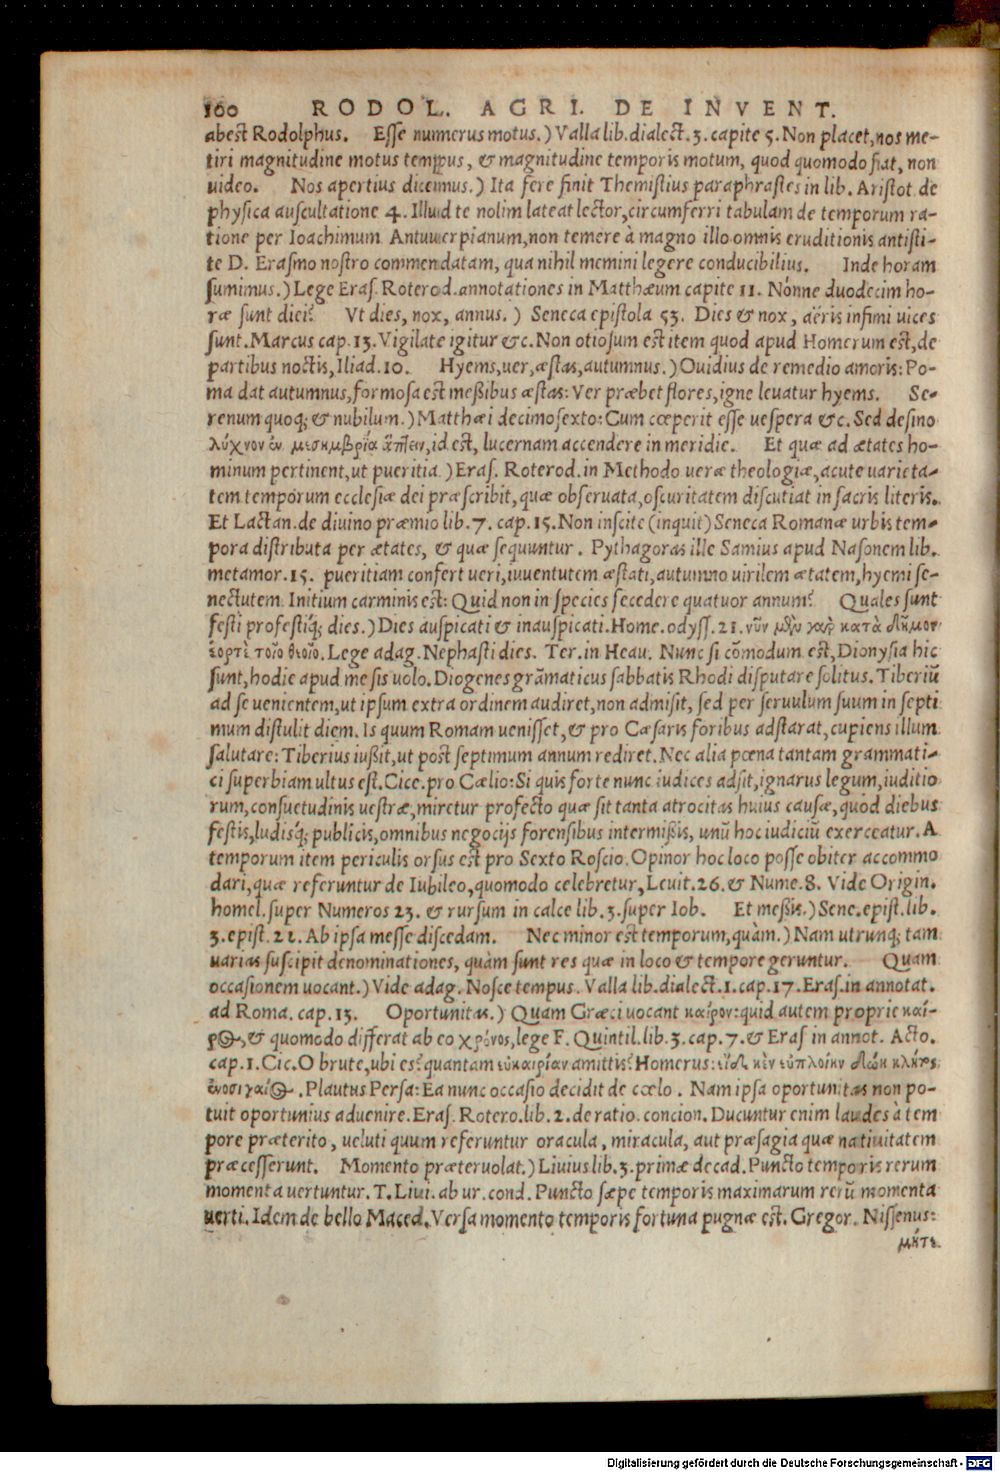 160 RODOL. AGRI. DE INVENT.
abest Rodolphus. Esse numerus motus.) Valla lib. dialect. 3. capite 5. Non placet, nos me-
tiri magnitudine motus tempus, & magnitudine temporis motum, quod quomodo fiat, non
uideo. Nos apertius dicemus.) Ita fere finit Themistius paraphrastes in lib. Aristot. de
physica auscultatione 4. Illud te nolim lateat lector, circumferri tabulam de temporum ra-
tione per Ioachimum Antuuerpianum, non temere à magno illo omnis eruditionis antisti-
te D. Erasmo nostro commendatam, qua nihil memini legere conducibilius. Inde horam
sumimus.) Lege Eras. Roterod. annotationes in Matthæum capite 11. Nónne duodecim ho-
ræ sunt diei? Vt dies, nox, annus. ) Seneca epistola 53. Dies & nox, aëris infimi uices
sunt. Marcus cap. 13. Vigilate igitur &c. Non otiosum est item quod apud Homerum est, de
partibus noctis, Iliad. 10. Hyems, uer, æstas, autumnus.) Ouidius de remedio amoris: Po-
ma dat autumnus, formosa est meßibus æstas: Ver præbet flores, igne leuatur hyems. Se-
renum quoq; & nubilum.) Matthæi decimosexto: Cum cœperit esse uespera &c. Sed desino
λύχνον ἐν μεσημβρίᾳ ἅπτειν, id est, lucernam accendere in meridie. Et quæ ad ætates ho-
minum pertinent, ut pueritia.) Eras. Roterod. in Methodo ueræ theologiæ, acute uarieta-
tem temporum ecclesiæ dei præscribit, quæ obseruata, oscuritatem discutiat in sacris literis.
Et Lactan. de diuino præmio lib. 7. cap. 15. Non inscite (inquit) Seneca Romanæ urbis tem-
pora distributa per ætates, & quæ sequuntur. Pythagoras ille Samius apud Nasonem lib.
metamor. 15. pueritiam confert ueri, iuuentutem æstati, autumno uirilem ætatem, hyemi se-
nectutem. Initium carminis est: Quid non in species secedere quatuor annum? Quales sunt
festi profestiq́; dies.) Dies auspicati & inauspicati. Home. odyss. 21. νῦν μὲν γὰρ κατὰ δῆμον
ἑορτὲ τοῖο θεοῖο. Lege adag. Nephasti dies. Ter. in Heau. Nunc si cõmodum est, Dionysia hic
sunt, hodie apud me sis uolo. Diogenes grãmaticus sabbatis Rhodi disputare solitus. Tiberiũ
ad se uenientem, ut ipsum extra ordinem audiret, non admisit, sed per seruulum suum in septi
mum distulit diem. Is quum Romam uenisset, & pro Cæsaris foribus adstarat, cupiens illum
salutare: Tiberius iußit, ut post septimum annum rediret. Nec alia pœna tantam grammati-
ci superbiam ultus est. Cice. pro Cælio: Si quis forte nunc iudices adsit, ignarus legum, iuditio
rum, consuetudinis uestræ, miretur profecto quæ sit tanta atrocitas huius causæ, quód diebus
festis, ludisq́; publicis, omnibus negocijs forensibus intermißis, unũ hoc iudiciũ exerceatur. A
temporum item periculis orsus est pro Sexto Roscio. Opinor hoc loco posse obiter accommo
dari, quæ referuntur de Iubileo, quomodo celebretur, Leuit. 26. & Nume. 8. Vide Origin.
homel. super Numeros 23. & rursum in calce lib. 3. super Iob. Et meßis.) Sene. epist. lib.
3. epist. 21. Ab ipsa messe discedam. Nec minor est temporum, quàm.) Nam utrunq; tam
uarias suscipit denominationes, quàm sunt res quæ in loco & tempore geruntur. Quam
occasionem uocant.) Vide adag. Nosce tempus. Valla lib. dialect. 1. cap. 17. Eras. in annotat.
ad Roma. cap. 13. Oportunitas.) Quam Græci uocant καίρον: quid autem proprie καί-
ρος, & quomodo differat ab eo χρόνος, lege F. Quintil. lib. 3. cap. 7. & Eras in annot. Acto.
cap. 1. Cic. O brute, ubi es? quantam εὐκαιρίαν amittis? Homerus:
ἐνοσιγαῖος. Plautus Persa: Ea nunc occasio decidit de cœlo. Nam ipsa oportunitas non po-
tuit oportunius aduenire. Eras. Rotero. lib. 2. de ratio. concion. Ducuntur enim laudes à tem
pore præterito, ueluti quum referuntur oracula, miracula, aut præsagia quæ natiuitatem
præcesserunt. Momento præteruolat.) Liuius lib. 3. primæ decad. Puncto temporis rerum
momenta uertuntur. T. Liui. ab ur. cond. Puncto sæpe temporis maximarum rerũ momenta
uerti. Idem de bello Maced. Versa momento temporis fortuna pugnæ est. Gregor. Nissenus:
μήτε
Digitalisierung gefördert durch die Deutsche Forschungsgemeinschaft - DFG